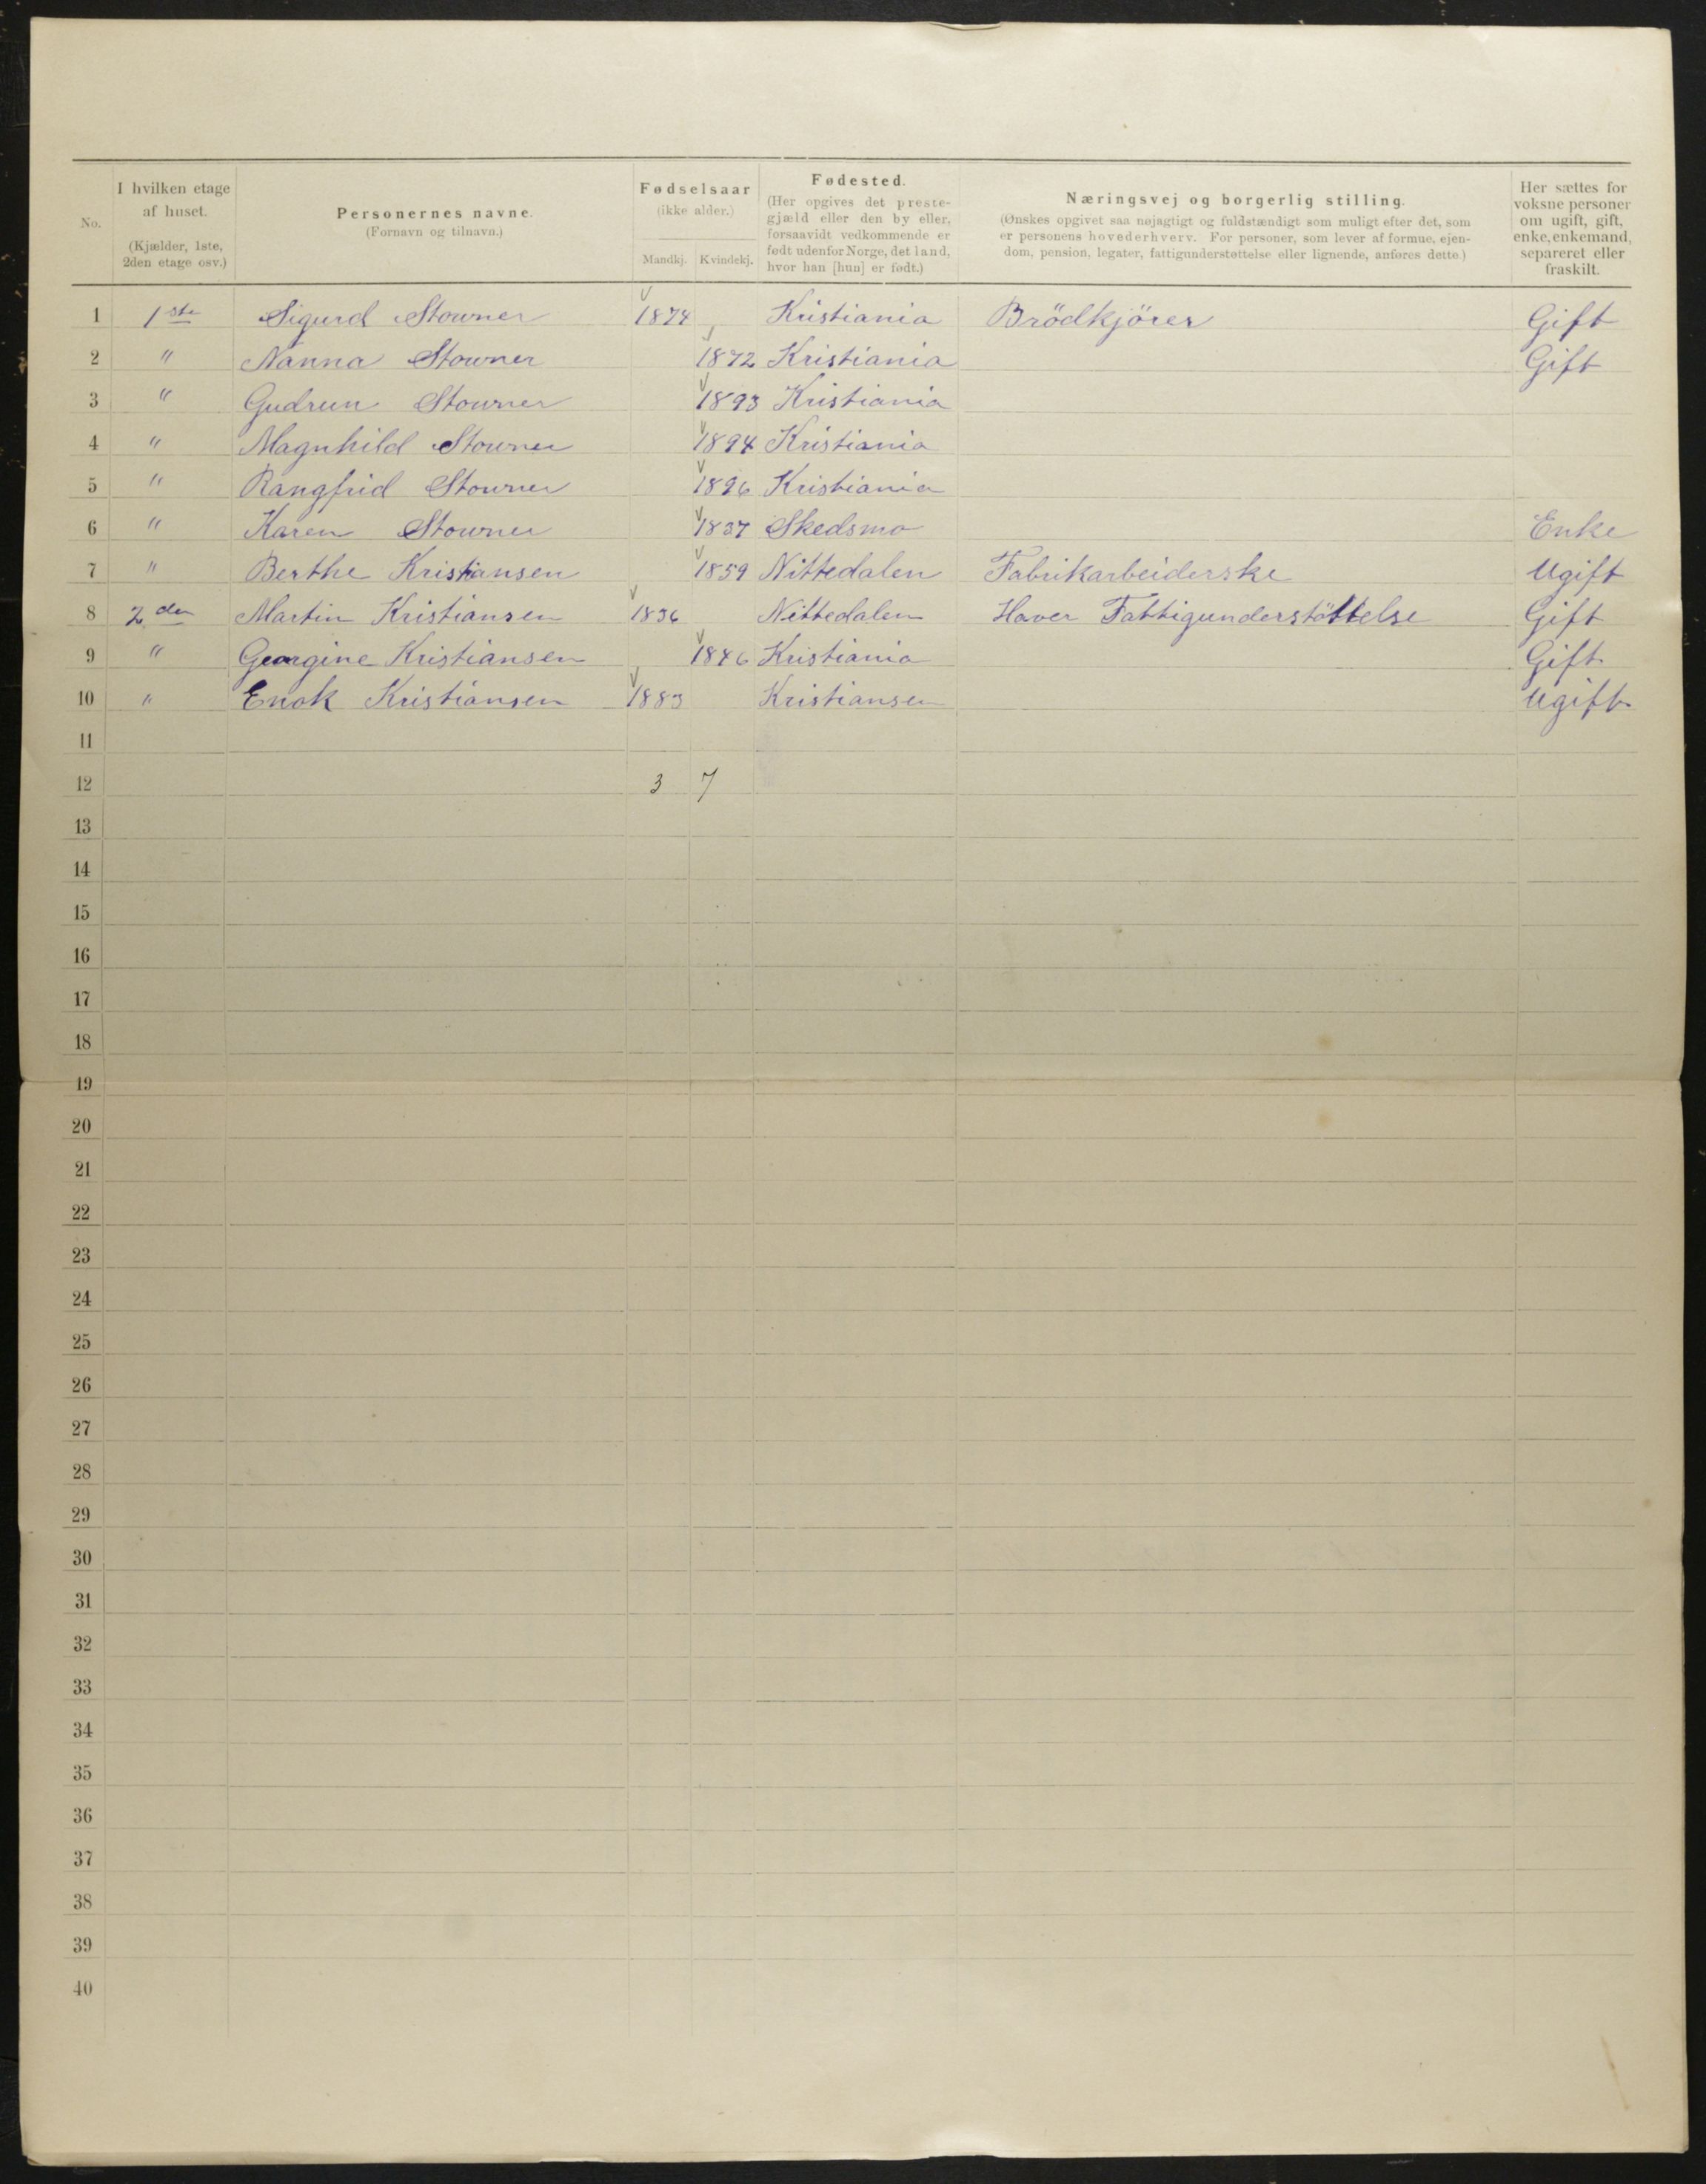 No. I hvilken etage af huset. (Kjælder, 1ste, 2den etage osv.) Personernes navne. (Fornavn og tilnavn.) Fødselsaar (ikke alder.) Mandkj. Kvindekj. Fødested. (Her opgives det prestegjæld eller den by eller, forsaavidt vedkommende er født udenfor Norge, det land, hvor han [hun] er født.) Næringsvej og borgerlig stilling. (Ønskes opgivet saa nøjagtigt og fuldstændigt som muligt efter det, som er personens hovederhverv. For personer, som lever af formue, ejendom, pension, legater, fattigunderstøttelse eller lignende, anføres dette.) Her sættes for voksne personer om ugift, gift, enke, enkemand, separeret eller fraskilt.
1 1ste Sigurd Stowner 1874 Kristiania Brödkjörer Gift
2 " Nanna Stowner 1872 Kristiania Gift
3 " Gudrun Stowner 1893 Kristiania
4 " Magnhild Stowner 1894 Kristiania
5 " Rangfrid Stowner 1896 Kristiania
6 " Karen Stowner 1837 Skedsmo Enke
7 " Berthe Kristiansen 1859 Nittedalen Fabrikarbeiderske Ugift
8 2den Martin Kristiansen 1836 Nittedalen Haver Fattigunderstöttelse Gift
9 " Georgine Kristiansen 1846 Kristiania Gift
10 " Enok Kristiansen 1883 Kristiansen Ugift
11
12 3 7
13
14
15
16
17
18
19
20
21
22
23
24
25
26
27
28
29
30
31
32
33
34
35
36
37
38
39
40